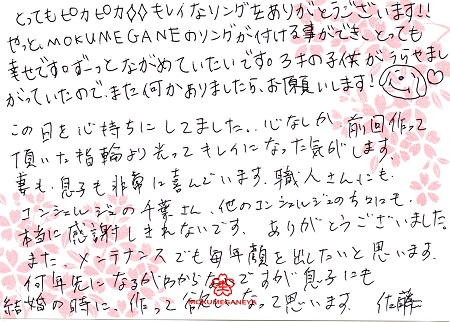 とってもピカピカ◇◇キレイなリングをありがとうございます!!
やっと、MOKUMEGANEのリングが付ける事ができ、とっても
幸せです。ずーっとながめていたいです。3才の子供がうらやまし
がっていたので、また何かありましたら、お願いします!
この日を心待ちにしてました。心なしか 前回作って
頂いた指輪より光ってキレイになった気がします。
妻も、息子も非常に喜んでいます。職人さんにも、
コンシェルジュの千葉さん、他のコンシェルジュの方々にも、
本当に感謝しきれないです。ありがとうございました。
また、メンテナンスでも毎年顔を出したいと思います。
何年先になるがわからないですが息子にも
結婚の時に、作って欲しいなって思います。 佐藤
MOKUMEGANEYA